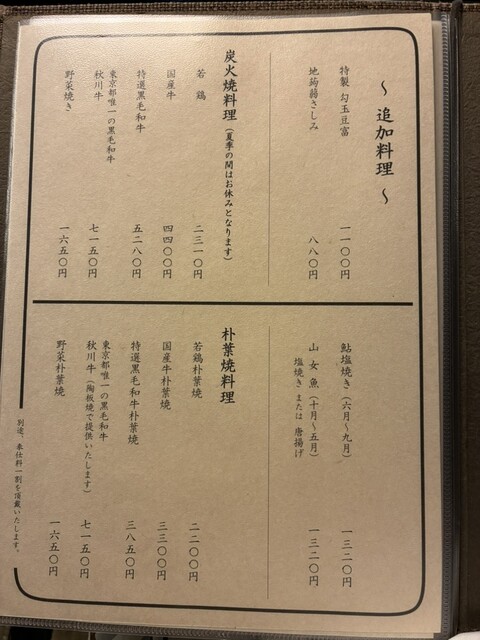 ～ 追加料理 ～
特製 勾玉豆富 一一〇〇円
地蒟蒻さしみ 八八〇円
炭火焼料理（夏季の間はお休みとなります）
若 鶏 二三一〇円
国産牛 四四〇〇円
特選黒毛和牛 五二八〇円
東京都唯一の黒毛和牛
秋川牛 七一五〇円
野菜焼き 一六五〇円
鮎塩焼き（六月～九月） 一三二〇円
山 女 魚（十月～五月） 一三二〇円
塩焼き または 唐揚げ
朴葉焼料理
若鶏朴葉焼 二二〇〇円
国産牛朴葉焼 三三〇〇円
特選黒毛和牛朴葉焼 三八五〇円
東京都唯一の黒毛和牛
秋川牛（陶板焼で提供いたします） 七一五〇円
野菜朴葉焼 一六五〇円
別途、奉仕料一割を頂戴いたします。